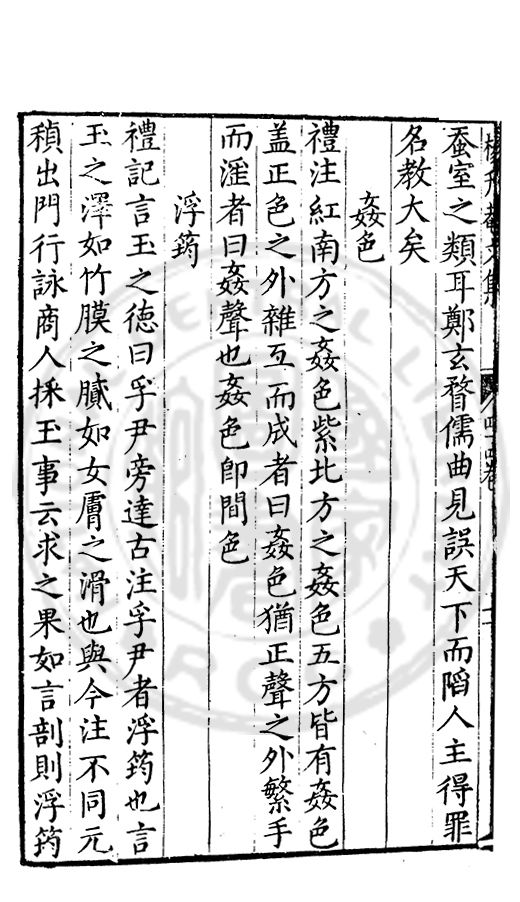 楊升菴文集
四十四卷
蚕室之類耳鄭玄瞀儒曲見誤天下而䧟人主得罪
名教大矣
姦色
禮注紅南方之姦色紫北方之姦色五方皆有姦色
盖正色之外雜互而成者曰姦色猶正聲之外繁手
而滛者曰姦聲也姦色卽間色
浮筠
禮記言玉之德曰孚尹旁達古注孚尹者浮筠也言
玉之澤如竹膜之膩如女膚之滑也與今注不同元
稹出門行詠商人採玉事云求之果如言剖則浮筠